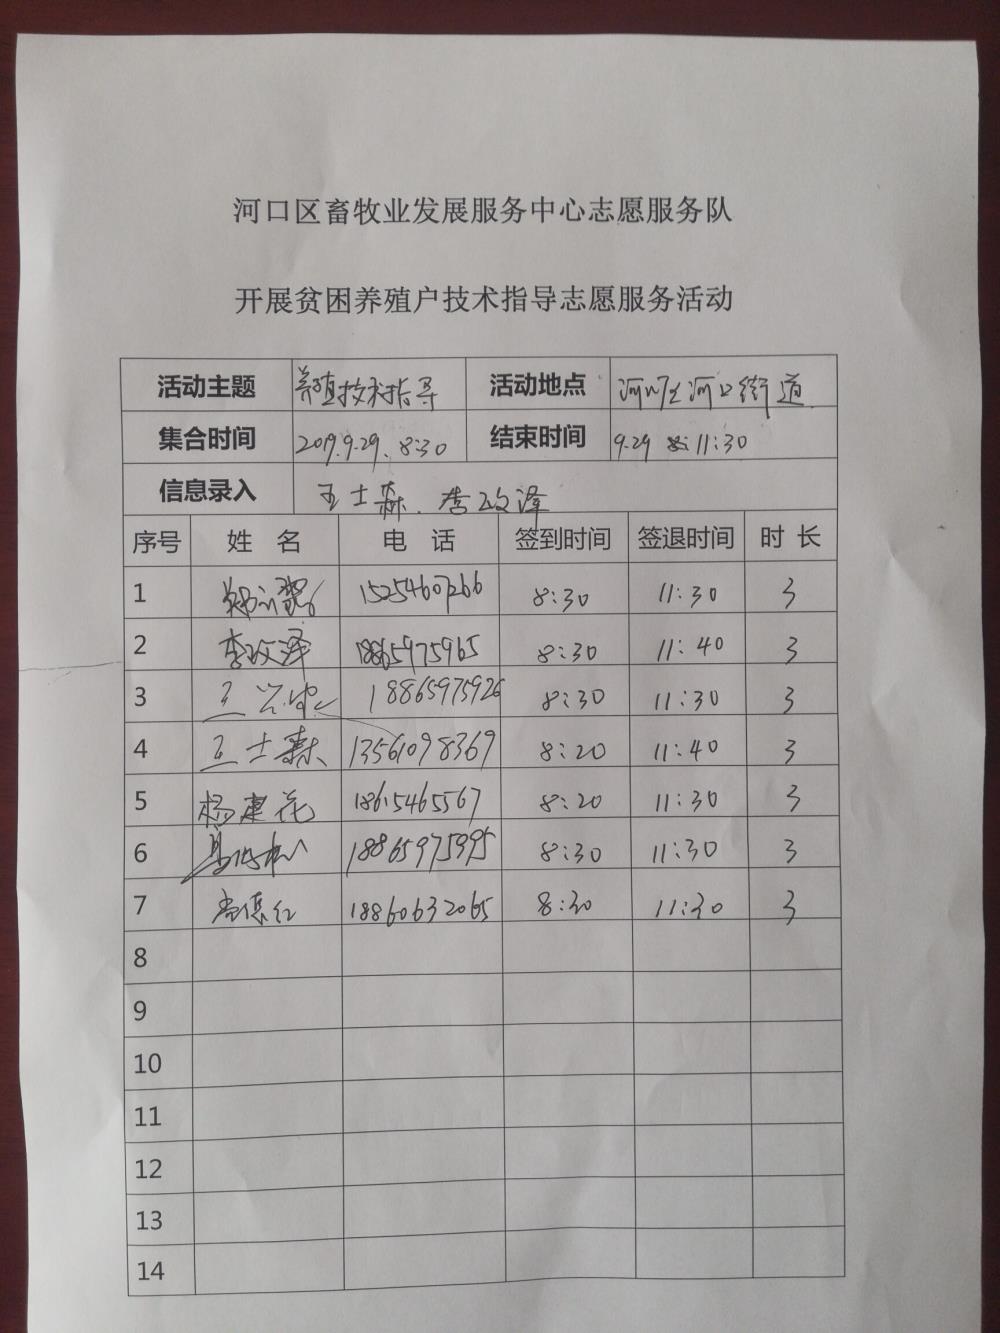 河口区畜牧业发展服务中心志愿服务队
开展贫困养殖户技术指导志愿服务活动
活动主题 养殖技术指导 活动地点 河口区河口街道
集合时间 2019.9.29. 8:30 结束时间 9.29 11:30
信息录入 王士森.李政泽
序号 姓 名 电 话 签到时间 签退时间 时 长
1 15254607266 8:30 11:30 3
2 李政泽 18865975965 8:30 11:40 3
3 王 18865975926 8:30 11:30 3
4 王士森 13561098369 8:20 11:40 3
5 杨建花 18615465567 8:20 11:30 3
6 18865975995 8:30 11:30 3
7 18860632065 8:30 11:30 3
8
9
10
11
12
13
14